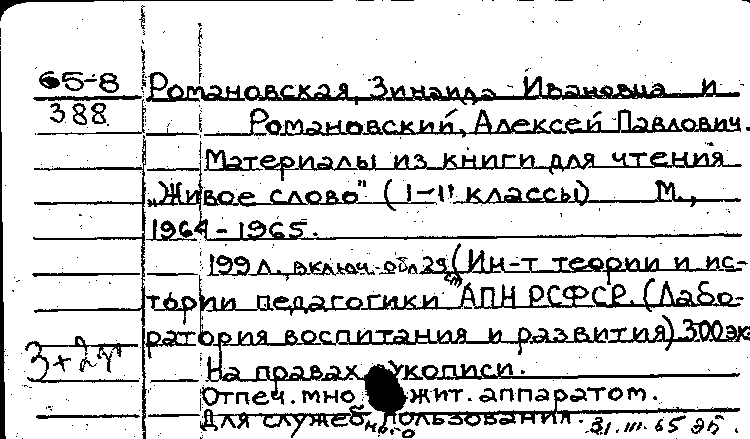 65-8 Романовская, Зинаида Ивановна и
388 Романовский, Алексей Павлович.
Материалы из книги для чтения
„Живое слово" (I-II классы) М.,
1964-1965.
199 л. включ. обл. 29 см (Ин-т теории и ис-
тории педагогики АПН РСФСР. (Лабо-
ратория воспитания и развития) 300 эк
На правах рукописи.
Отпеч. множит. аппаратом.
Для служебного пользования. 31.III.65